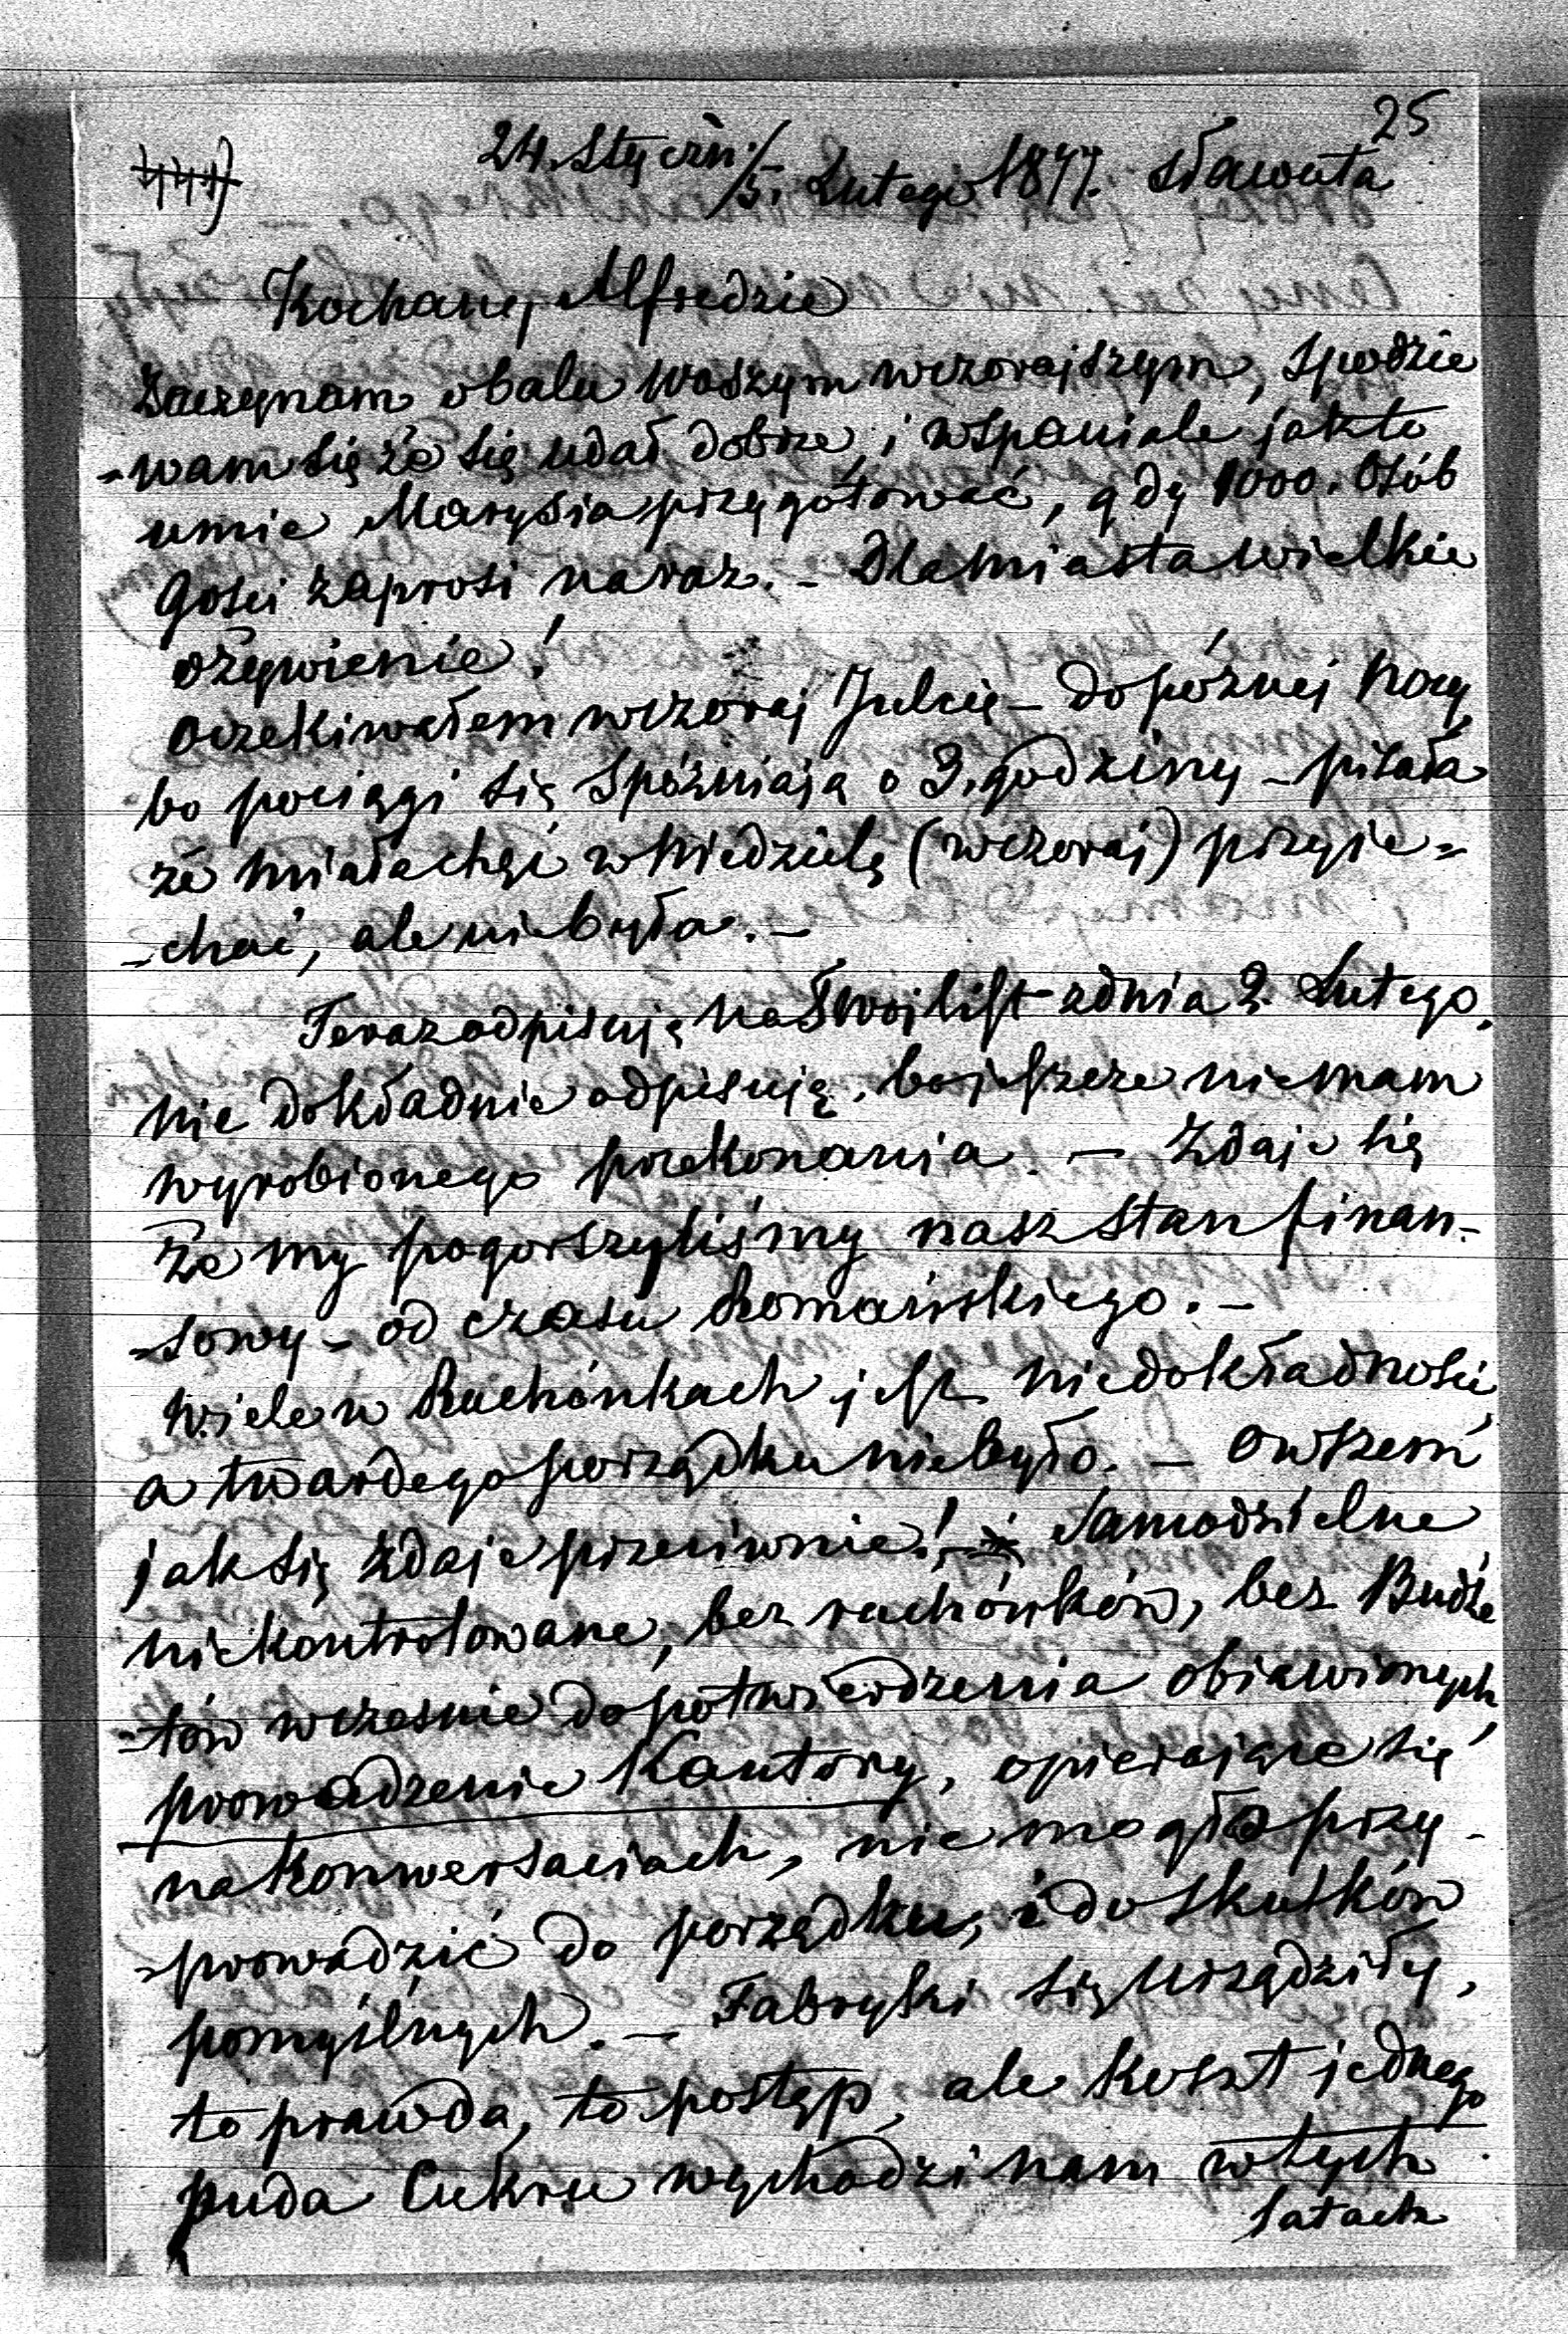 25
24. Styczń./5. Lutego 1877. Sławuta
Kochany Alfredzie
Zaczynam o balu waszym wczorajszym, spodzie
-wam się że się udał dobrze, i wspaniale jak to
umie Marysia przygotować, gdy 1000. Osób
Gości zaprosi naraz. - Dla miasta wielkie
ożywienie!
Oczekiwałem wczoraj Julcię - do późnej nocy
bo pociągi się spóźniają o 3. godziny - pisała
że miała chęć w Niedzielę (wczoraj) przyje=
-chać, ale nie była. -
Teraz odpisuję na Twój list z dnia 2. Lutego,
nie dokładnie odpisuję, bo jeszcze nie mam
wyrobionego przekonania. - Zdaje się
że my pogorszyliśmy nasz stan finan-
-sowy - od czasu Romańskiego. -
Wiele w Rachónkach jest niedokładności,
a twardego porządku nie było. - Owszem
jak się zdaje przeciwnie! - Samodzielne
niekontrolowane, bez rachónków, bez Budże
-tów wcześnie do potwierdzenia objawionych,
prowadzenie Kantory, opierające się
na konwersaciach, nie mogło przy-
-prowadzić do porządku, i do skutków
pomyślnych. - Fabryki się urządziły,
to prawda, to postęp, ale koszt jednego
puda Cukru wychodzi nam w tych
latach